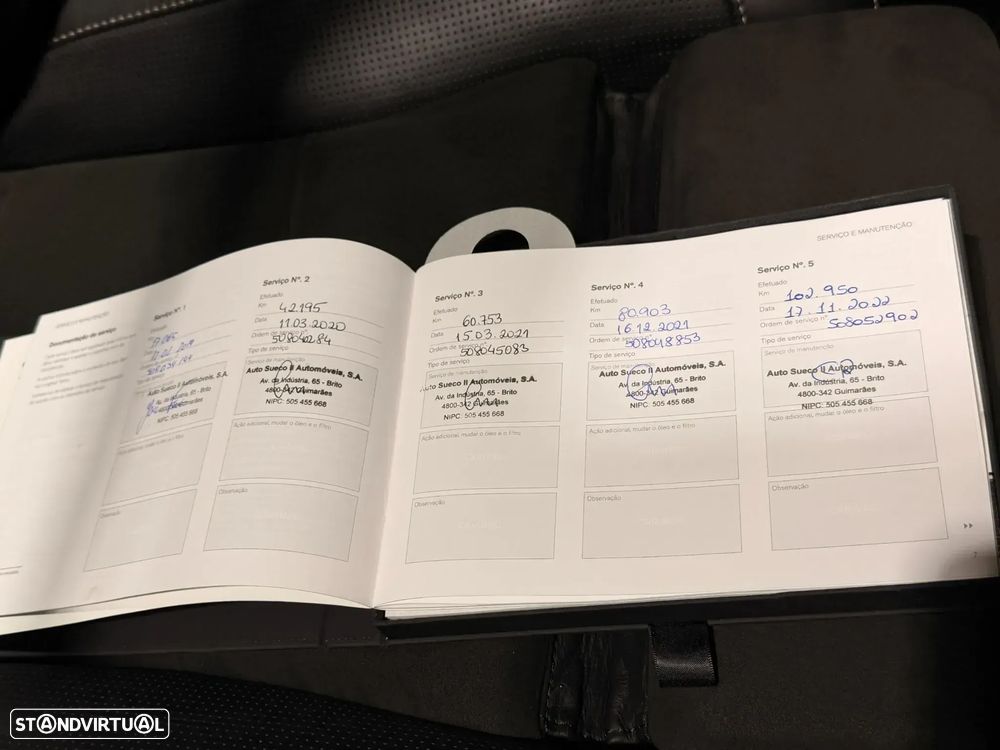 SERVIÇO E MANUTENÇÃO
Documentação do serviço
Serviço Nº. 1
Tipo de serviço
Auto Sueco II Automóveis, S.A.
Av. da Indústria, 65 - Brito
4800-342 Guimarães
NIPC: 505 455 668
Ação adicional, mudar o óleo e o filtro
Observação
Serviço Nº. 2
Efetuado
Km 42.195
Data 11.03.2020
Ordem de serviço nº
508040284
Tipo de serviço
Serviço de manutenção
Auto Sueco II Automóveis, S.A.
Av. da Indústria, 65 - Brito
4800-342 Guimarães
NIPC: 505 455 668
Ação adicional, mudar o óleo e o filtro
Observação
Serviço Nº. 3
Efetuado
Km 60.753
Data 15.03.2021
Ordem de serviço nº
508045083
Tipo de serviço
Serviço de manutenção
Auto Sueco II Automóveis, S.A.
Av. da Indústria, 65 - Brito
4800-342 Guimarães
NIPC: 505 455 668
Ação adicional, mudar o óleo e o filtro
Observação
SERVIÇO E MANUTENÇÃO
Serviço Nº. 4
Efetuado
Km 80.903
Data 16.12.2021
Ordem de serviço nº
508048853
Tipo de serviço
Serviço de manutenção
Auto Sueco II Automóveis, S.A.
Av. da Indústria, 65 - Brito
4800-342 Guimarães
NIPC: 505 455 668
Ação adicional, mudar o óleo e o filtro
Observação
Serviço Nº. 5
Efetuado
Km 102.950
Data 17.11.2022
Ordem de serviço nº 508052902
Tipo de serviço
Serviço de manutenção
Auto Sueco II Automóveis, S.A.
Av. da Indústria, 65 - Brito
4800-342 Guimarães
NIPC: 505 455 668
Ação adicional, mudar o óleo e o filtro
Observação
7
STANDVIRTUAL